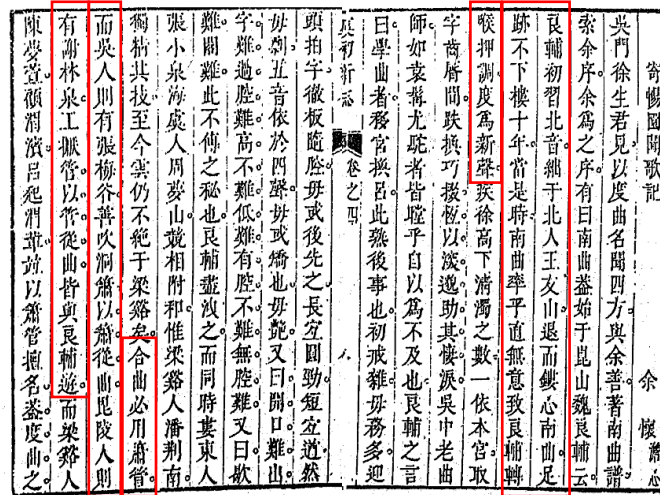 寄暢園聞歌記
余懷澹心
吳門徐生君見以度曲名聞四方與余善著南曲譜
索余序余爲之序有曰南曲蓋始于崑山魏良輔云
良輔初習北音絀于北人王友山退而鏤心南曲足
跡不下樓十年當是時南曲率平直無意致良輔轉
喉押調度爲新聲疾徐高下清濁之數一依本宮取
字齒唇間跌換巧掇恆以深邈助其悽淚吳中老曲
師如袁髯尤駝者皆瞠乎自以爲不及也良輔之言
曰學曲者移宮換呂此熟後事也初戒雜毋務多迎
虞初新志 卷之四 八
頭拍字徹板隨腔毋或後先之長宜圓勁短宜遒然
毋剽五音依於四聲毋或矯也毋艷又曰開口難出
字難過腔難高不難低難有腔不難無腔難又曰歌
難閫難此不傳之秘也良輔盡洩之而同時婁東人
張小泉海虞人周夢山競相附和惟梁谿人潘荆南
獨精其技至今雲仍不絕于梁谿矣合曲必用簫管
而吳人則有張梅谷善吹洞簫以簫從曲毘陵人則
有謝林泉工擫管以管從曲皆與良輔遊而梁谿人
陳夢萱顧渭濱呂起渭輩竝以簫管擅名蓋度曲之